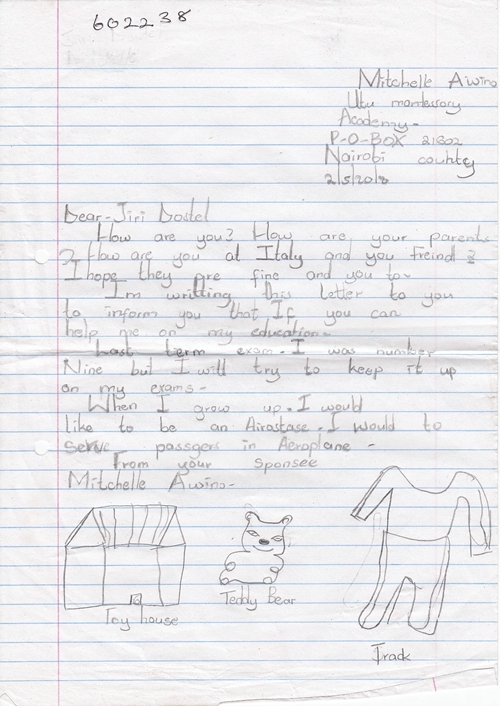 602238
Mitchelle Awino
Utu montessory
Academy-
P-O-BOX 21302
Nairobi country
2/5/2018
Dear-Jiri Dostel
How are you? How are your parents
? How are you at Italy and you Freind ?
I hope they are fine and you to-
Im writting this letter to you
to inform you that If you can
help me on my education-
Last term exam. I was number
Nine but I will try to keep it up
on my exams-
When I grow up. I would
like to be an Airastase. I would to
serve passgers in Aeroplane-
From your sponsee
Mitchelle Awino-
Toy house
Teddy Bear
Track